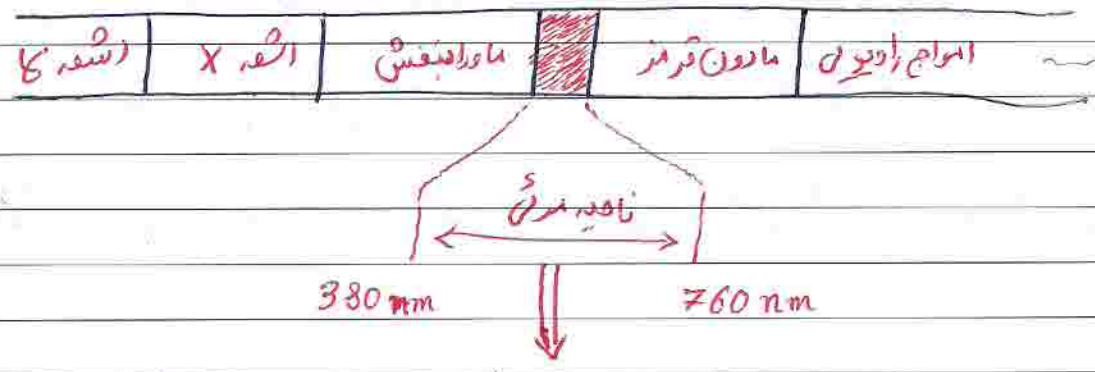 اشعه γ | اشعه X | ماوراءبنفش | مادون قرمز | امواج رادیویی
ناحیه مرئی
380 nm 760 nm